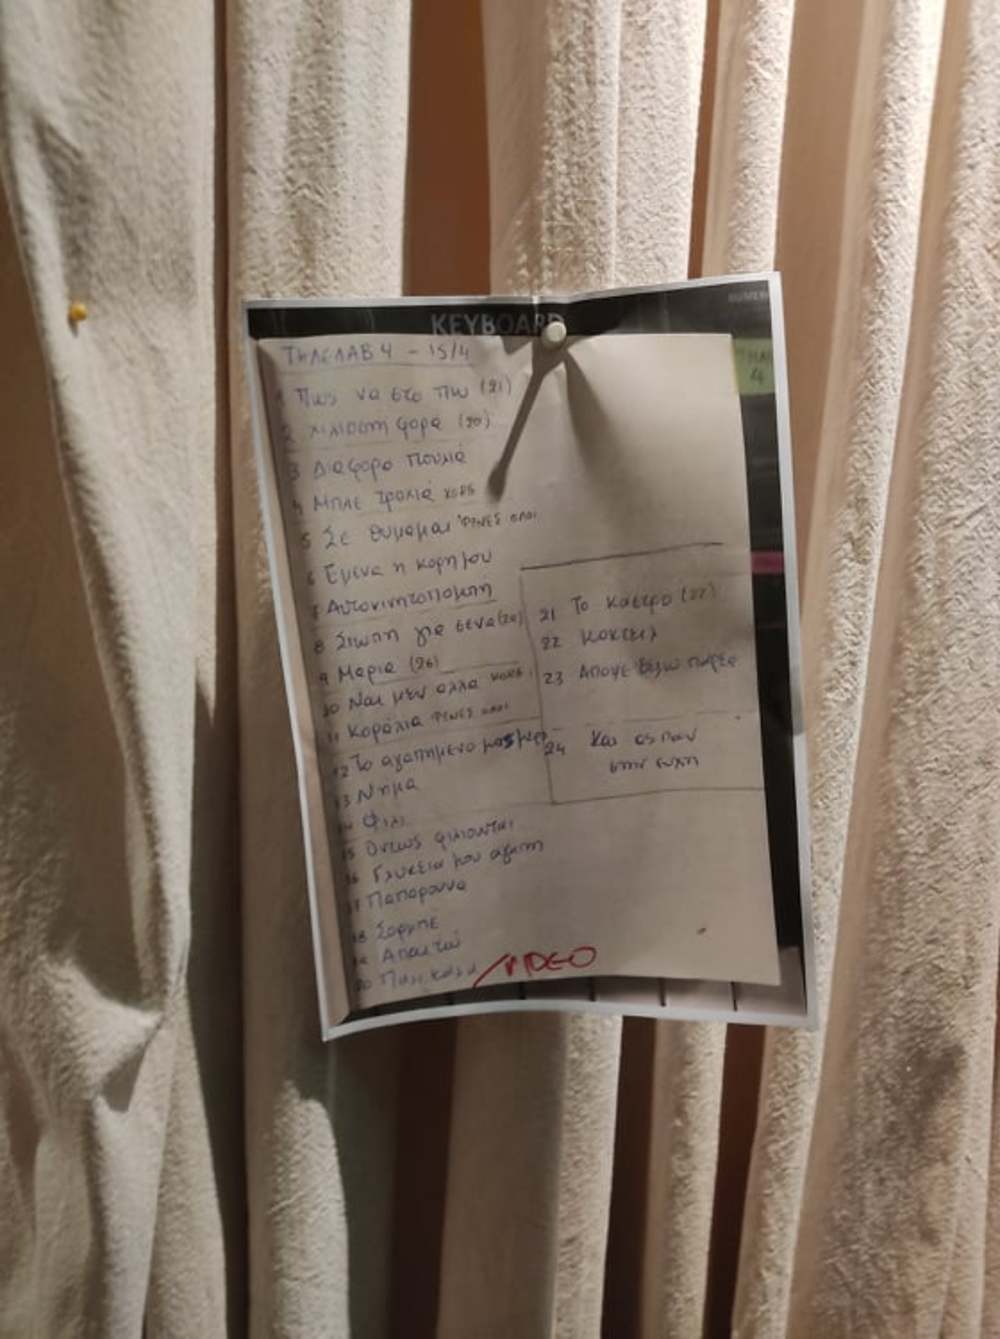 KEYBOARD
ΤΗΛΕΛΑΒ 4 - 15/4
4
1 Πως να στο πω (21)
2 χιλιοστη φορα (20)
3 Διαφορα πουλιά
4 Μπλε τρολιά χορς
5 Σε θυμαμαι φινες ολοι
6 Εμενα η κορη μου
7 Αυτοκινητοπομπή
8 Σιωπη για σενα (20)
9 Μαρια (26)
10 Ναι μεν αλλα χορς
11 Κοράλια φινες ολοι
12 Το αγαπημενο μας μερος
13 Νημα
14 Φιλι
15 Οντως φιλιουνται
16 Γλυκεια μου αγαπη
17 Παπαρουνα
18 Σορμπε
19 Απαιτω
20 Παλικαρι /VIDEO
21 Το καστρο (22)
22 κοκτεϊλ
23 Αποψε θελω παρεα
24 Και ας παν
στην ευχη